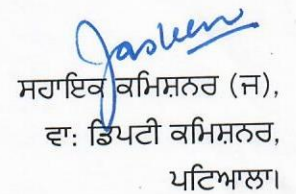 Jasleen
ਸਹਾਇਕ ਕਮਿਸ਼ਨਰ (ਜ),
ਵਾ: ਡਿਪਟੀ ਕਮਿਸ਼ਨਰ,
ਪਟਿਆਲਾ।